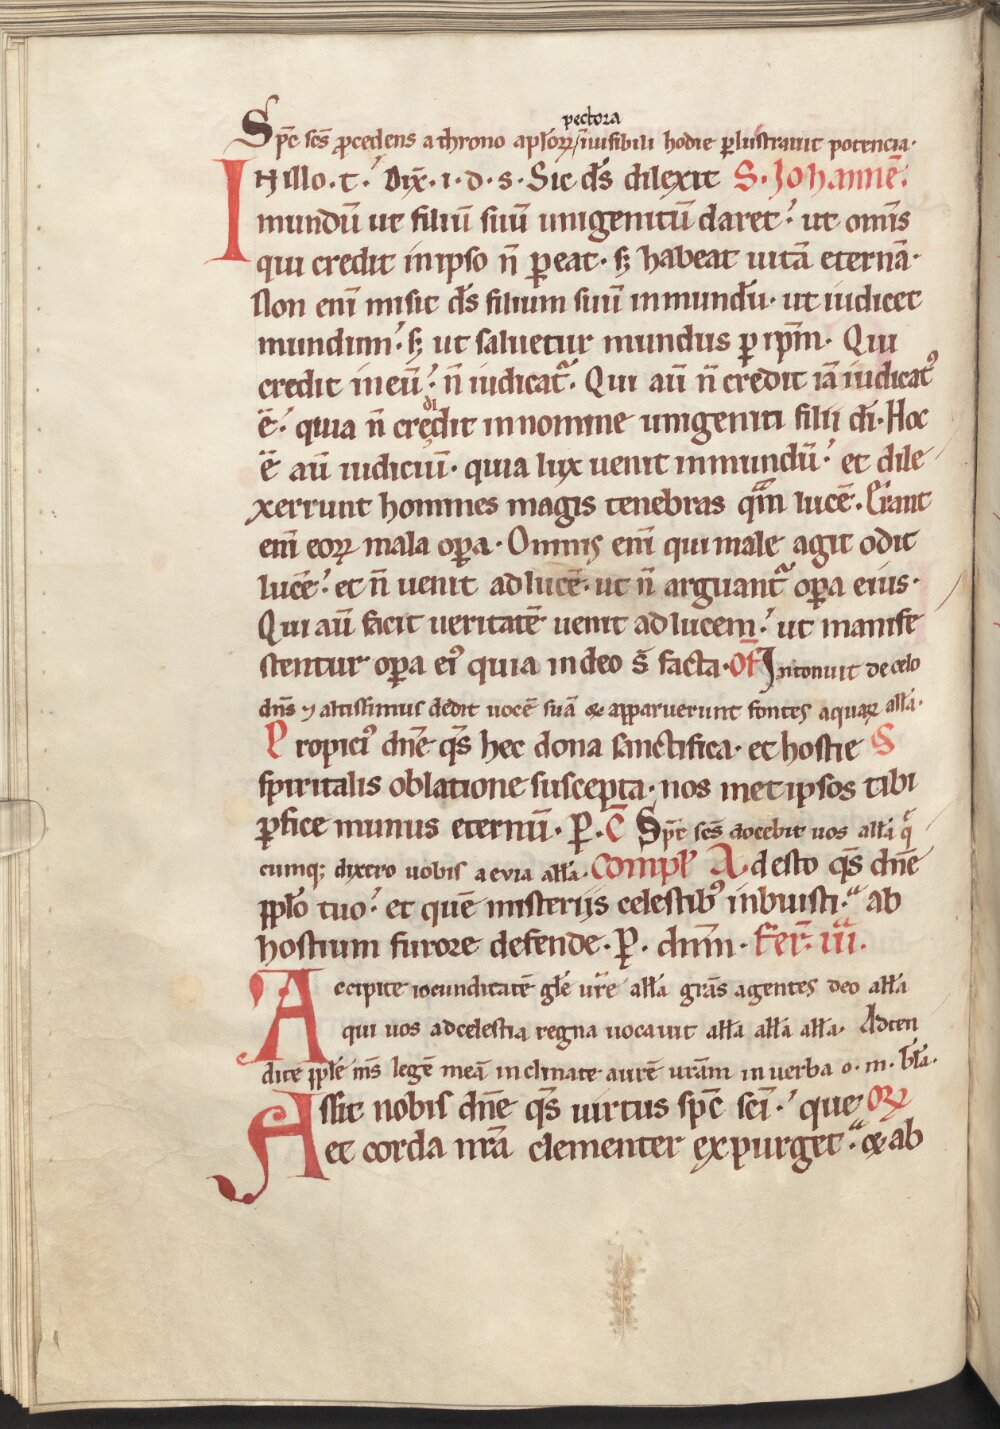 pectora
Sp̄c sc̄s p̄cedens a throno apl̄oꝝ / inuisibili hodie ꝑlustrauit potencia·
IN illo·t·' Dix̄·i·d·s· Sic d̄s dilexit S·Johannē·
mundū ut filiū suū unigenitū daret·' ut omīs
qui credit in ipso n̄ ꝑeat· sꝫ habeat uitā eternā·
Non enī misit d̄s filium suū in mundū· ut iudicet
mundum·' sꝫ ut saluetur mundus ꝑ ip̄m· Qui
credit in eū·' n̄ iudicat᷑· Qui aū n̄ credit iā iudicatꝰ
ē·' quia n̄ credit in nomine unigeniti filii di̅· Hoc
di
ē aū iudiciū· quia lux uenit in mundū·' et dile
xerunt homines magis tenebras qm̄ lucē· Erant
enī eoꝝ mala oꝑa· Omnis enī qui male agit odit
lucē·' et n̄ uenit ad lucē· ut n̄ arguant᷑ oꝑa eius·
Qui aū facit ueritatē uenit ad lucem·' ut manife
stentur oꝑa eiꝰ quia in deo s̄ facta· Of̄ Intonuit de celo
dn̄s ⁊ altissimus dedit uocē suā & apparuerunt fontes aquaꝝ all̄a·
Propiciꝰ dn̄e qs̄ hec dona sanctifica· et hostie S
spiritalis oblatione suscepta· nos met ipsos tibi
ꝑfice munus eternū· P̲·C̄ Sp̄c sc̄s docebit uos all̄a q̄
cumqꝫ dixero uobis aeuia all̄a· Compl̄ Adesto qs̄ dn̄e
ppl̄o tuo·' et quē misteriis celestibꝰ inbuisti· ab
hostium furore defende· P̲· dnm̄· Fer̄· iii·
Accipite iocunditatē gl̄e ur̄e all̄a gr̄as agentes deo all̄a
qui uos ad celestia regna uocauit all̄a all̄a all̄a· Adten
dite ppl̄e m̄s legē meā inclinate aurē ur̄am in uerba o·m· Gl̄a·
Assit nobis dn̄e qs̄ uirtus sp̄c sci̅·' que Oꝝ
et corda nr̄a clementer expurget· & ab